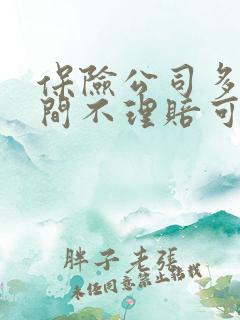 保險公司多
間不理賠可
胖子老張
未任同意禁止轉載